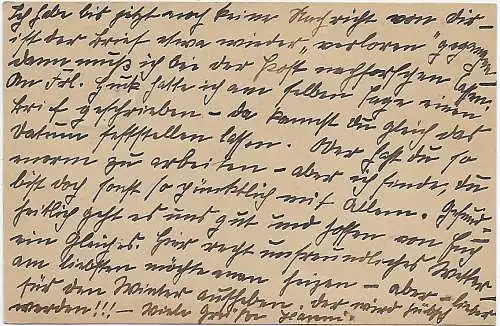 Ich habe bis jetzt noch keine Nachricht von dir -
ist der Brief etwa wieder „verloren" gegangen
dann muß ich bei der Post nachforschen lassen.
An Frl. Huck hatte ich am selben Tage einen
Brief geschrieben - da kannst du gleich das
Datum feststellen lassen. Oder hast du so
enorm zu arbeiten - aber ich finde, du
bist doch sonst so pünktlich mit Allem. Gesund-
heitlich geht es uns gut und hoffen von Euch
ein Gleiches. Hier recht unfreundliches Wetter -
am liebsten möchte man heizen - aber - lieber
für den Winter aufheben. Der wird hübsch
werden!!! - Viele Grüße